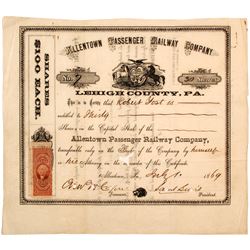 ALLENTOWN PASSENGER RAILWAY COMPANY
SHARES $100 EACH.
No. 7
30 Shares
LEHIGH COUNTY, PA.
This is to Certify that Robert Iost is
entitled to Thirty
Shares in the Capital Stock of the
Allentown Passenger Railway Company,
transferable only on the Books of the Company by himself
or his Attorney on the surrender of this Certificate.
Allentown, Pa. July 1. 1869
President